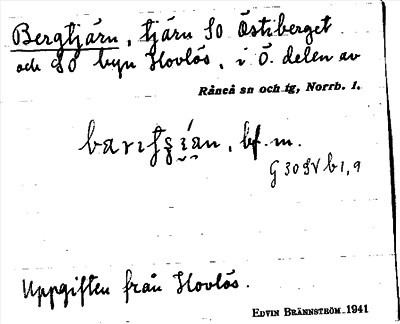 Bergtjärn, tjärn SO Östiberget
och SO byn Hovlös, i Ö. delen av
Råneå sn och tg, Norrb. l.
bf. m.
G 30 SV b 1, 9
Uppgiften från Hovlös.
EDVIN BRÄNNSTRÖM. 1941